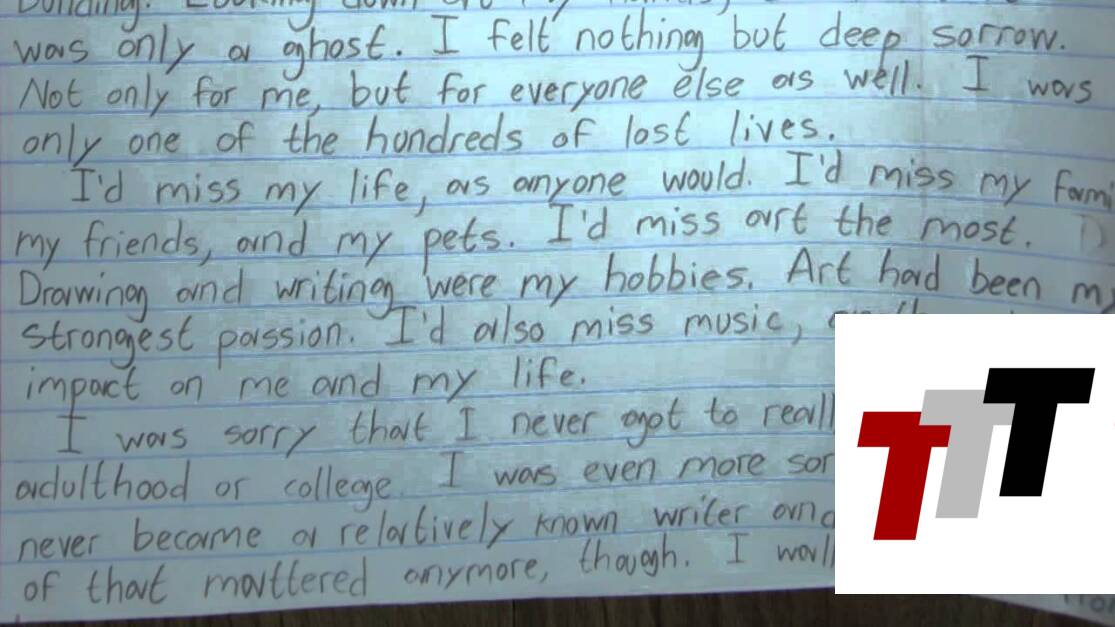 was only a ghost. I felt nothing but deep sorrow.
Not only for me, but for everyone else as well. I was
only one of the hundreds of lost lives.
I'd miss my life, as anyone would. I'd miss my
my friends, and my pets. I'd miss art the most.
Drawing and writing were my hobbies. Art had been
strongest passion. I'd also miss music,
impact on me and my life.
I was sorry that I never got to
adulthood or college. I was even more
never became a relatively known writer
of that mattered anymore, though. I
TTT